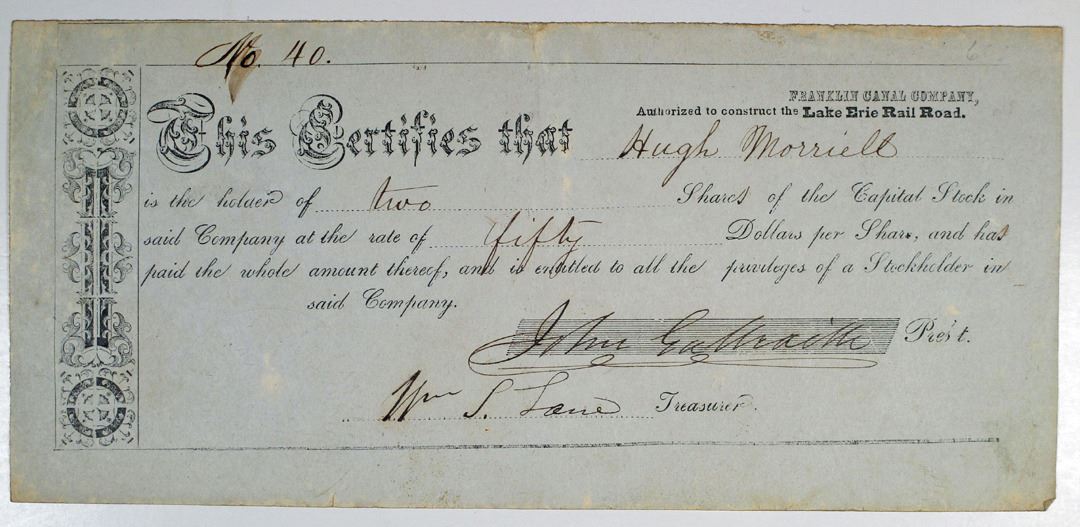 No. 40.
FRANKLIN CANAL COMPANY,
Authorized to construct the Lake Erie Rail Road.
This Certifies that Hugh Morriell
is the holder of two Shares of the Capital Stock in
said Company at the rate of fifty Dollars per Share, and has
paid the whole amount thereof, and is entitled to all the privileges of a Stockholder in
said Company.
John Galbraith Pres't.
Wm S. Lane Treasurer.